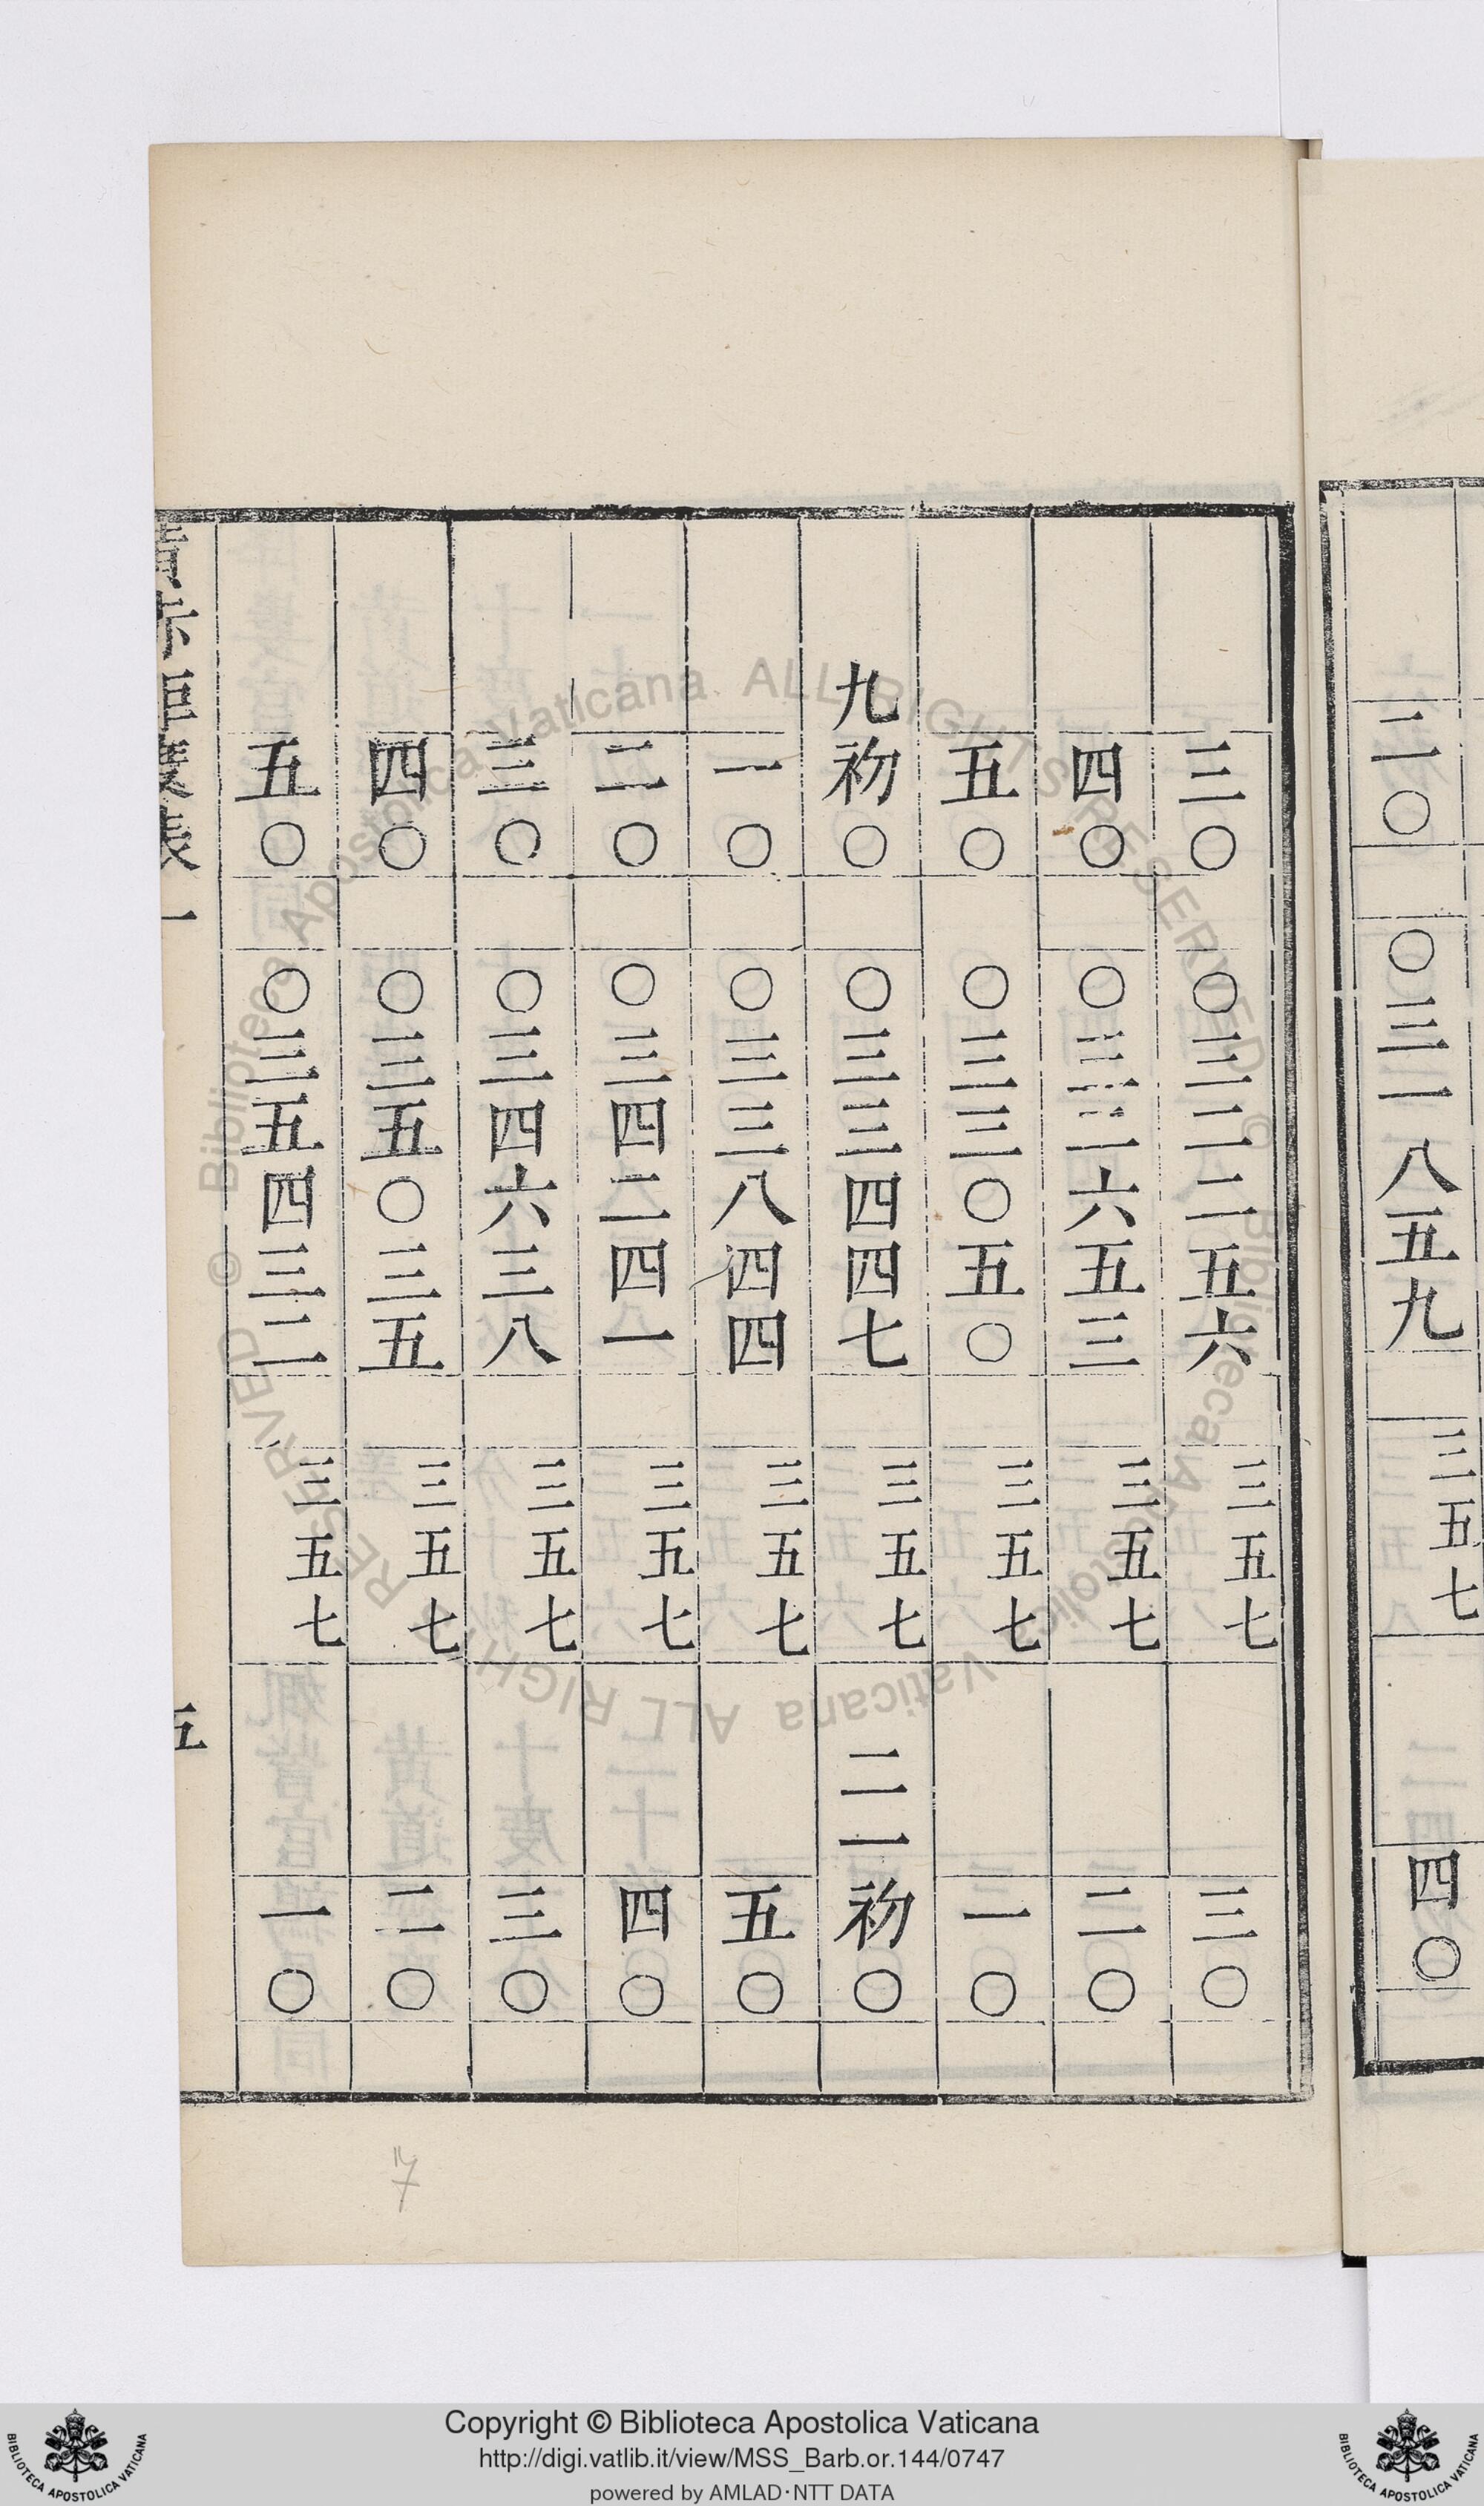 二〇 〇三一八五九 三五七 四〇
三〇 〇三二二五六 三五七 三〇
四〇 〇三二六五三 三五七 二〇
五〇 〇三三〇五〇 三五七 一〇
九初〇 〇三三四四七 三五七 二一初〇
一〇 〇三三八四四 三五七 五〇
二〇 〇三四二四一 三五七 四〇
三〇 〇三四六三八 三五七 三〇
四〇 〇三五〇三五 三五七 二〇
五〇 〇三五四三二 三五七 一〇
一 五
7
Copyright © Biblioteca Apostolica Vaticana
http://digi.vatlib.it/view/MSS_Barb.or.144/0747
powered by AMLAD·NTT DATA